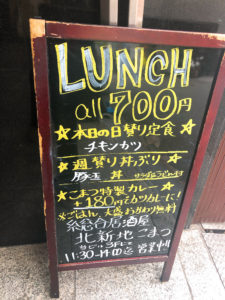 LUNCH
all 700円
★本日の日替り定食★
チキンカツ
★週替り丼ぶり★
豚玉丼
★こまつ特製カレー★
+180円でカツカレーに!
※ごはん、大盛おかわり無料
総合居酒屋
北新地こまつ
11:30-14:00迄 営業中!